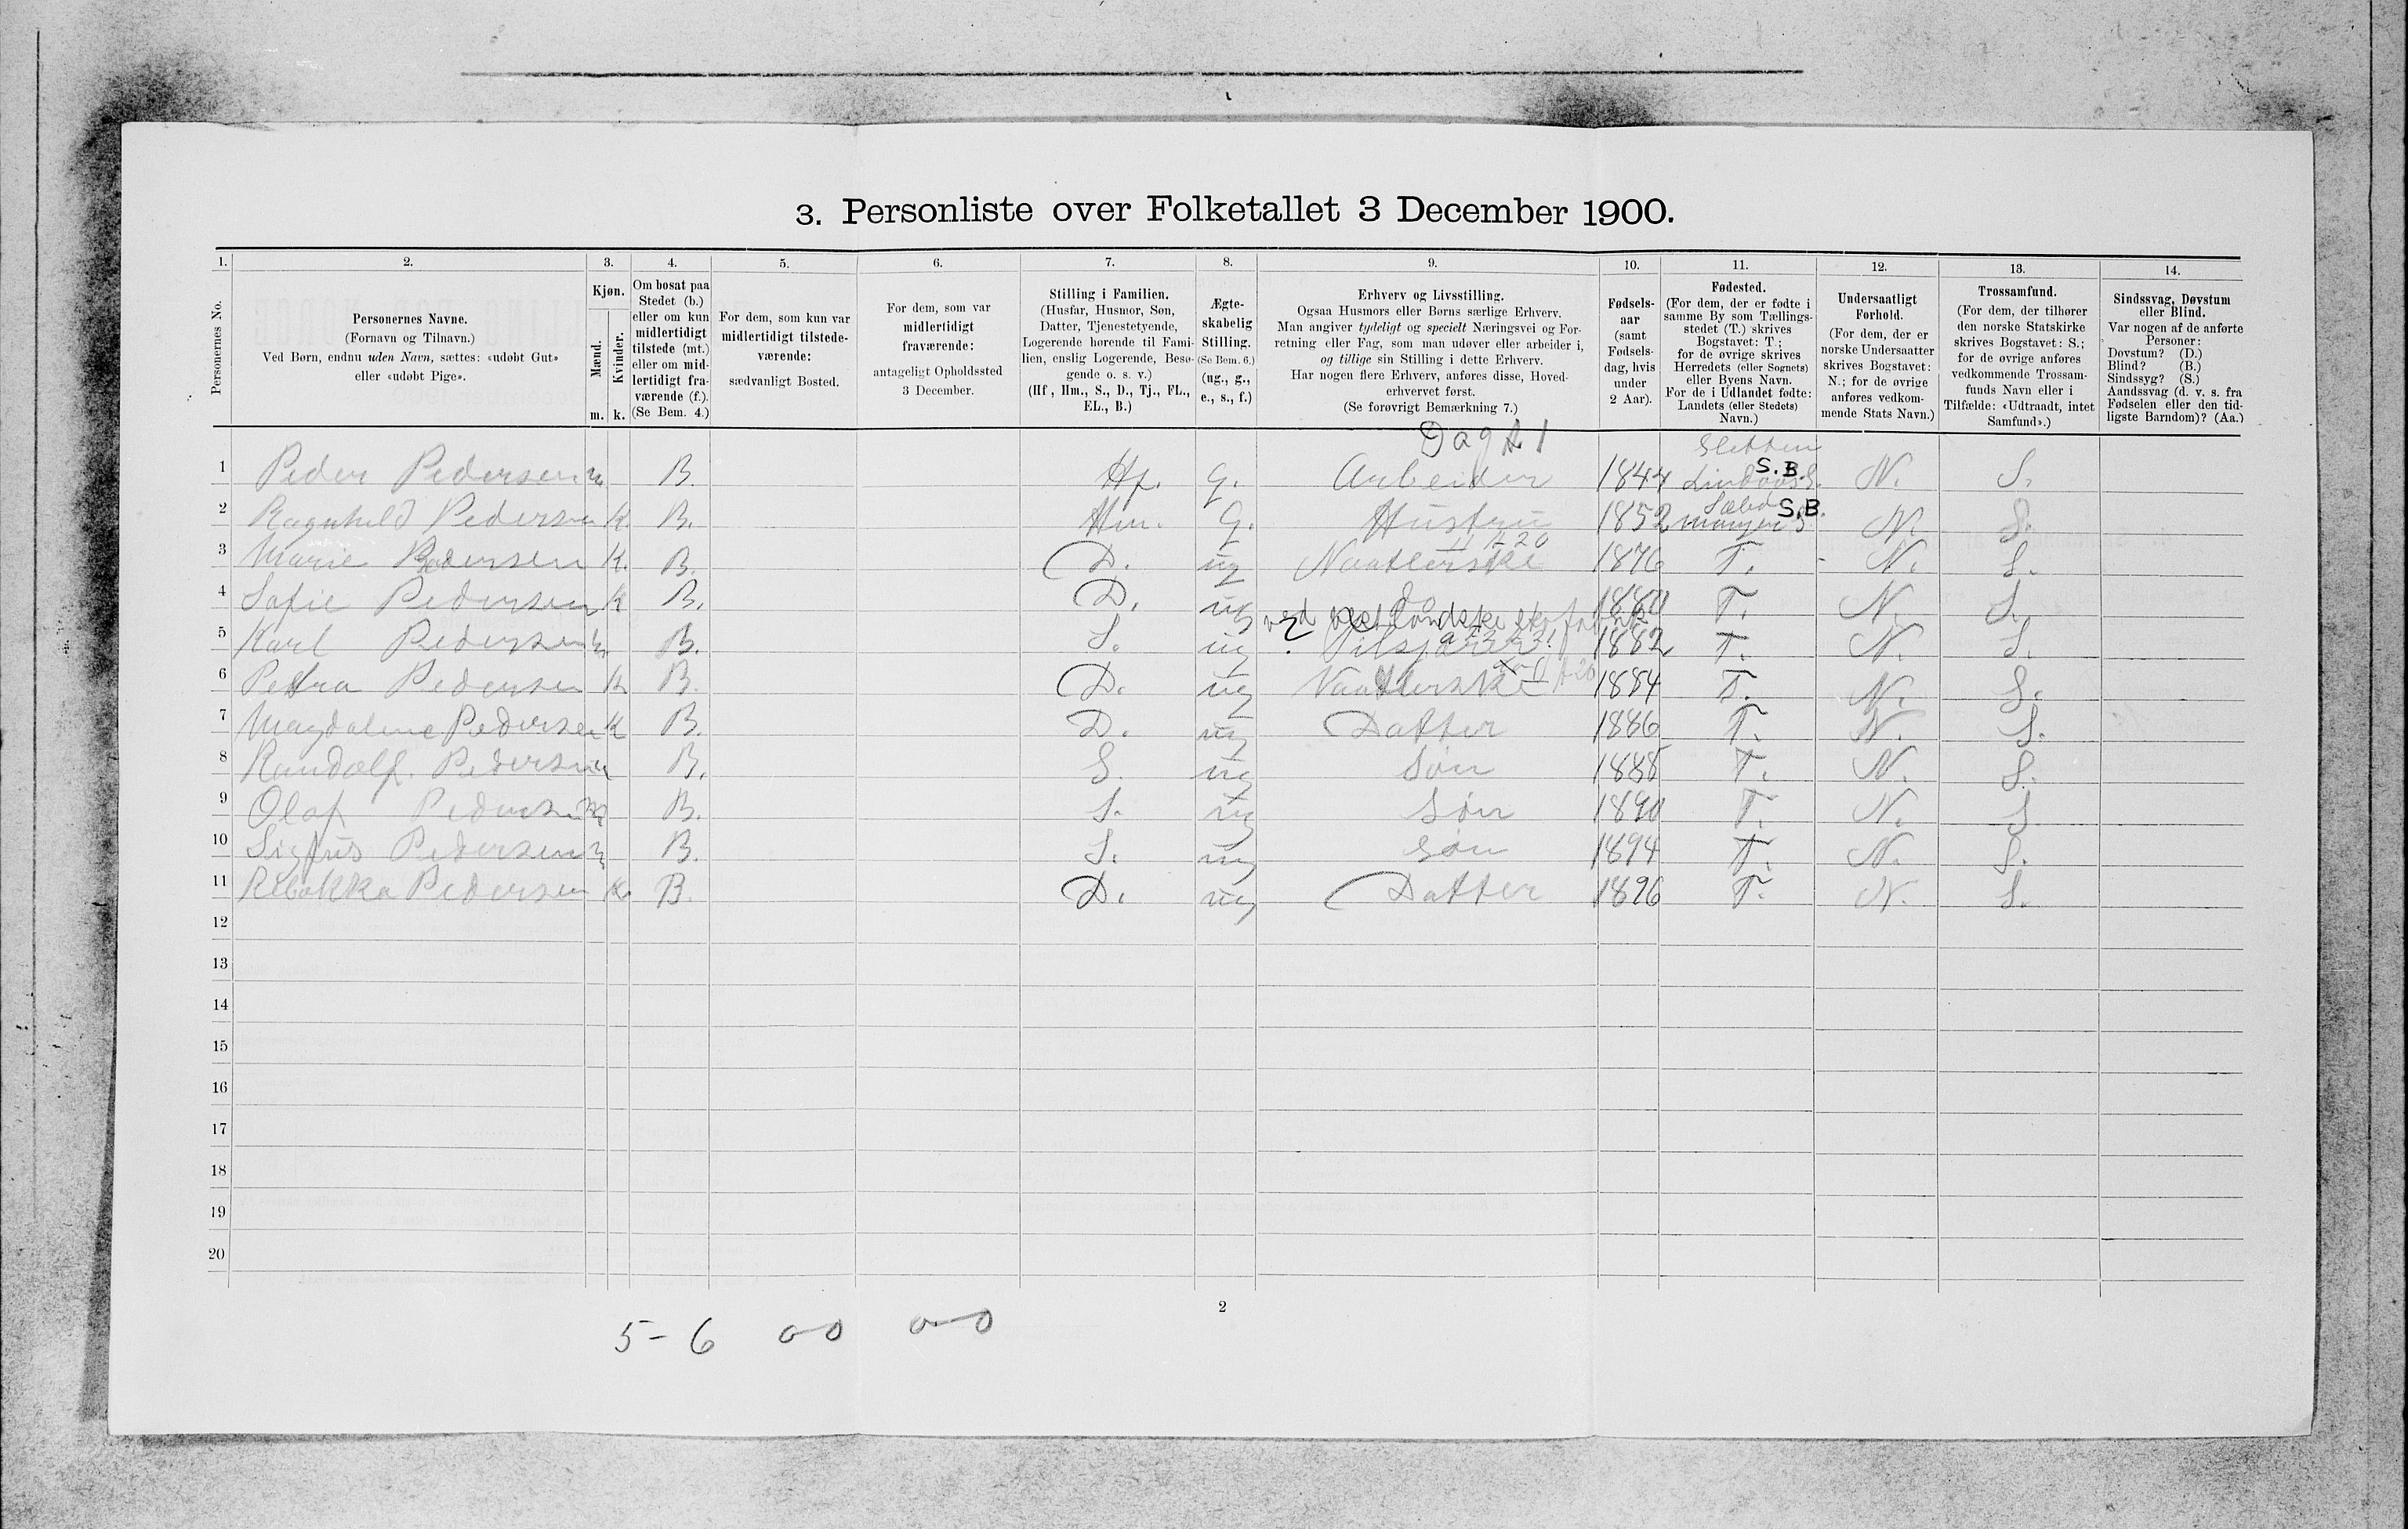 3. Personliste over Folketallet 3 December 1900.
1. 2. 3. 4. 5. 6. 7. 8. 9. 10. 11. 12. 13. 14.
Personernes No.
Personernes Navne.
(Fornavn og Tilnavn.)
Ved Børn, endnu uden Navn, sættes: «udøbt Gut»
eller «udøbt Pige».
Kjøn.
Mænd.
Kvinder.
m. k.
Om bosat paa
Stedet (b.)
eller om kun
midlertidigt
tilstede (mt.)
eller om mid-
lertidigt fra-
værende (f.).
(Se Bem. 4.)
For dem, som kun var
midlertidigt tilstede-
værende:
sædvanligt Bosted.
For dem, som var
midlertidigt
fraværende:
antageligt Opholdssted
3 December.
Stilling i Familien.
(Husfar, Husmor, Søn,
Datter, Tjenestetyende,
Logerende hørende til Fami-
lien, enslig Logerende, Besø-
gende o. s. v.)
(Hf, Hm., S., D., Tj., FL.,
EL., B.)
Ægte-
skabelig
Stilling.
(Se Bem. 6.)
(ug., g.,
e., s., f.)
Erhverv og Livsstilling.
Ogsaa Husmors eller Børns særlige Erhverv.
Man angiver tydeligt og specielt Næringsvei og For-
retning eller Fag, som man udøver eller arbeider i,
og tillige sin Stilling i dette Erhverv.
Har nogen flere Erhverv, anføres disse, Hoved-
erhvervet først.
(Se forøvrigt Bemærkning 7.)
Fødsels-
aar
(samt
Fødsels-
dag, hvis
under
2 Aar).
Fødested.
(For dem, der er fødte i
samme By som Tællings-
stedet (T.) skrives
Bogstavet: T.;
for de øvrige skrives
Herredets (eller Sognets)
eller Byens Navn.
For de i Udlandet fødte:
Landets (eller Stedets)
Navn.)
Undersaatligt
Forhold.
(For dem, der er
norske Undersaatter
skrives Bogstavet:
N.; for de øvrige
anføres vedkom-
mende Stats Navn.)
Trossamfund.
(For dem, der tilhører
den norske Statskirke
skrives Bogstavet: S.;
for de øvrige anføres
vedkommende Trossam-
funds Navn eller i
Tilfælde: «Udtraadt, intet
Samfund».)
Sindssvag, Døvstum
eller Blind.
Var nogen af de anførte
Personer:
Døvstum? (D.)
Blind? (B.)
Sindssyg? (S.)
Aandssvag (d. v. s. fra
Fødselen eller den tid-
ligste Barndom)? (Aa.)
Dag
1 Peder Pedersen m B. Hf. g. Arbeider 1844 S.B. N. S.
2 Ragnhild Pedersen K. B. Hm. G. Hustru 1852 Manger S.B. N. S.
3 Marie Pedersen K. B. D. ug Naatlerske 1876 T. N. S.
4 Sofie Pedersen K B. D. ug do 1880 T. N. S.
ved vestlandske skofabrik
5 Karl Pedersen m B. S. ug 1882 T. N. S.
6 Petra Pedersen K B. D. ug Naatlerske 1884 T. N. S.
7 Magdaline Pedersen K B. D. ug Datter 1886 T. N. S.
8 Randolf. Pedersen m B. S. ug Søn 1888 T. N. S.
9 Olaf Pedersen m B. S. ug Søn 1890 T. N. S
10 Sigfus Pedersen m B. S. ug Søn 1894 T. N. S.
11 Rebekka Pedersen K. B. D. ug Datter 1896 T. N. S.
12
13
14
15
16
17
18
19
20
2
5-6 0-0 0-0